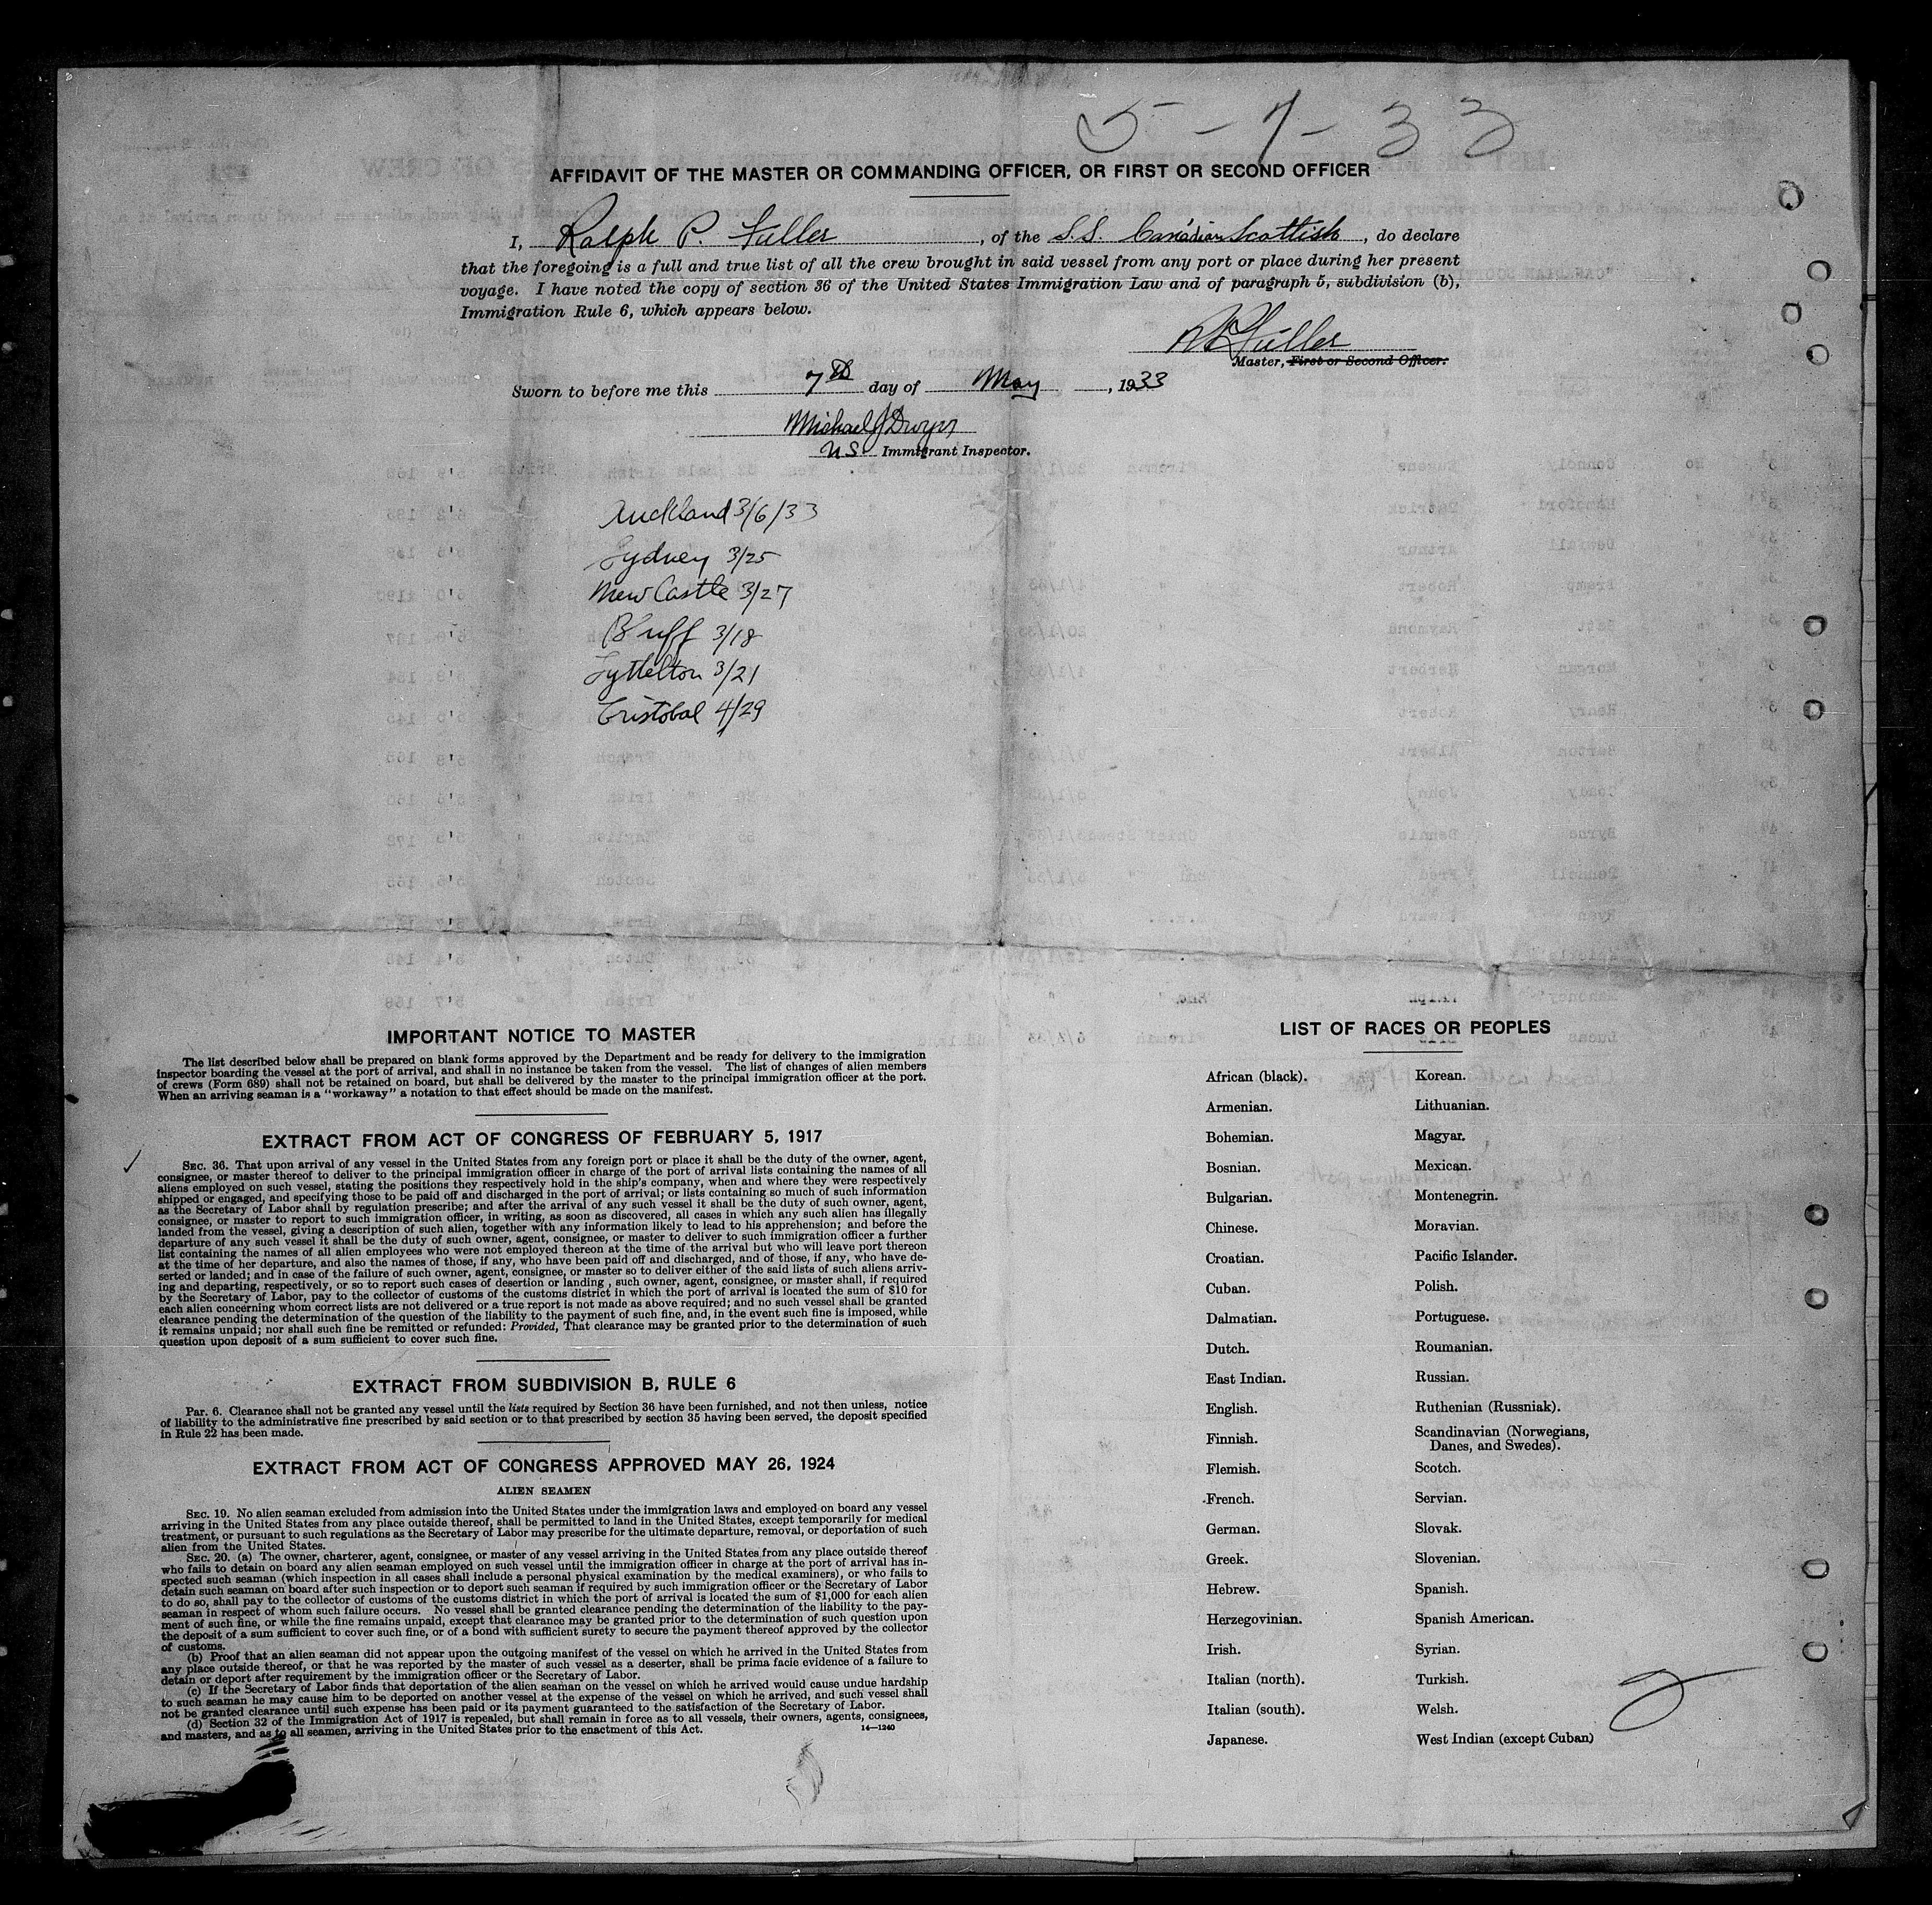 5-7-33
AFFIDAVIT OF THE MASTER OR COMMANDING OFFICER, OR FIRST OR SECOND OFFICER
I, Ralph P. Fuller, of the S.S. Canadian Scottish, do declare
that the foregoing is a full and true list of all the crew brought in said vessel from any port or place during her present
voyage. I have noted the copy of section 36 of the United States Immigration Law and of paragraph 5, subdivision (b),
Immigration Rule 6, which appears below.
RP Fuller
Master, First or Second Officer.
Sworn to before me this 7th day of May, 1933
Michael J Dwyer
US Immigrant Inspector.
Auckland 3/6/33
Sydney 3/25
New Castle 3/27
Bluff 3/18
Lyttelton 3/21
Cristobal 4/29
IMPORTANT NOTICE TO MASTER
The list described below shall be prepared on blank forms approved by the Department and be ready for delivery to the immigration
inspector boarding the vessel at the port of arrival, and shall in no instance be taken from the vessel. The list of changes of alien members
of crews (Form 689) shall not be retained on board, but shall be delivered by the master to the principal immigration officer at the port.
When an arriving seaman is a "workaway" a notation to that effect should be made on the manifest.
EXTRACT FROM ACT OF CONGRESS OF FEBRUARY 5, 1917
SEC. 36. That upon arrival of any vessel in the United States from any foreign port or place it shall be the duty of the owner, agent,
consignee, or master thereof to deliver to the principal immigration officer in charge of the port of arrival lists containing the names of all
aliens employed on such vessel, stating the positions they respectively hold in the ship's company, when and where they were respectively
shipped or engaged, and specifying those to be paid off and discharged in the port of arrival; or lists containing so much of such information
as the Secretary of Labor shall by regulation prescribe; and after the arrival of any such vessel it shall be the duty of such owner, agent,
consignee, or master to report to such immigration officer, in writing, as soon as discovered, all cases in which any such alien has illegally
landed from the vessel, giving a description of such alien, together with any information likely to lead to his apprehension; and before the
departure of any such vessel it shall be the duty of such owner, agent, consignee, or master to deliver to such immigration officer a further
list containing the names of all alien employees who were not employed thereon at the time of the arrival but who will leave port thereon
at the time of her departure, and also the names of those, if any, who have been paid off and discharged, and of those, if any, who have de-
serted or landed; and in case of the failure of such owner, agent, consignee, or master so to deliver either of the said lists of such aliens arriv-
ing and departing, respectively, or so to report such cases of desertion or landing, such owner, agent, consignee, or master shall, if required
by the Secretary of Labor, pay to the collector of customs of the customs district in which the port of arrival is located the sum of $10 for
each alien concerning whom correct lists are not delivered or a true report is not made as above required; and no such vessel shall be granted
clearance pending the determination of the question of the liability to the payment of such fine, and, in the event such fine is imposed, while
it remains unpaid; nor shall such fine be remitted or refunded: Provided, That clearance may be granted prior to the determination of such
question upon deposit of a sum sufficient to cover such fine.
EXTRACT FROM SUBDIVISION B, RULE 6
Par. 6. Clearance shall not be granted any vessel until the lists required by Section 36 have been furnished, and not then unless, notice
of liability to the administrative fine prescribed by said section or to that prescribed by section 35 having been served, the deposit specified
in Rule 22 has been made.
EXTRACT FROM ACT OF CONGRESS APPROVED MAY 26, 1924
ALIEN SEAMEN
SEC. 19. No alien seaman excluded from admission into the United States under the immigration laws and employed on board any vessel
arriving in the United States from any place outside thereof, shall be permitted to land in the United States, except temporarily for medical
treatment, or pursuant to such regulations as the Secretary of Labor may prescribe for the ultimate departure, removal, or deportation of such
alien from the United States.
SEC. 20. (a) The owner, charterer, agent, consignee, or master of any vessel arriving in the United States from any place outside thereof
who fails to detain on board any alien seaman employed on such vessel until the immigration officer in charge at the port of arrival has in-
spected such seaman (which inspection in all cases shall include a personal physical examination by the medical examiners), or who fails to
detain such seaman on board after such inspection or to deport such seaman if required by such immigration officer or the Secretary of Labor
to do so, shall pay to the collector of customs of the customs district in which the port of arrival is located the sum of $1,000 for each alien
seaman in respect of whom such failure occurs. No vessel shall be granted clearance pending the determination of the liability to the pay-
ment of such fine, or while the fine remains unpaid, except that clearance may be granted prior to the determination of such question upon
the deposit of a sum sufficient to cover such fine, or of a bond with sufficient surety to secure the payment thereof approved by the collector
of customs.
(b) Proof that an alien seaman did not appear upon the outgoing manifest of the vessel on which he arrived in the United States from
any place outside thereof, or that he was reported by the master of such vessel as a deserter, shall be prima facie evidence of a failure to
detain or deport after requirement by the immigration officer or the Secretary of Labor.
(c) If the Secretary of Labor finds that deportation of the alien seaman on the vessel on which he arrived would cause undue hardship
to such seaman he may cause him to be deported on another vessel at the expense of the vessel on which he arrived, and such vessel shall
not be granted clearance until such expense has been paid or its payment guaranteed to the satisfaction of the Secretary of Labor.
(d) Section 32 of the Immigration Act of 1917 is repealed, but shall remain in force as to all vessels, their owners, agents, consignees,
and masters, and as to all seamen, arriving in the United States prior to the enactment of this Act.
14—1240
LIST OF RACES OR PEOPLES
African (black).
Armenian.
Bohemian.
Bosnian.
Bulgarian.
Chinese.
Croatian.
Cuban.
Dalmatian.
Dutch.
East Indian.
English.
Finnish.
Flemish.
French.
German.
Greek.
Hebrew.
Herzegovinian.
Irish.
Italian (north).
Italian (south).
Japanese.
Korean.
Lithuanian.
Magyar.
Mexican.
Montenegrin.
Moravian.
Pacific Islander.
Polish.
Portuguese.
Roumanian.
Russian.
Ruthenian (Russniak).
Scandinavian (Norwegians,
Danes, and Swedes).
Scotch.
Servian.
Slovak.
Slovenian.
Spanish.
Spanish American.
Syrian.
Turkish.
Welsh.
West Indian (except Cuban)
2